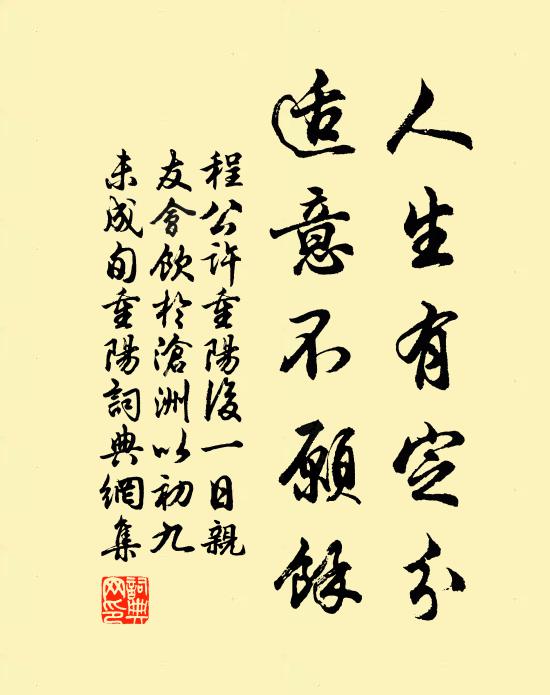 人生有定分
適意不願餘
程公許重陽後一日親
友會飲於滄洲以初九
未成旬重陽詞典網集
詞典网印